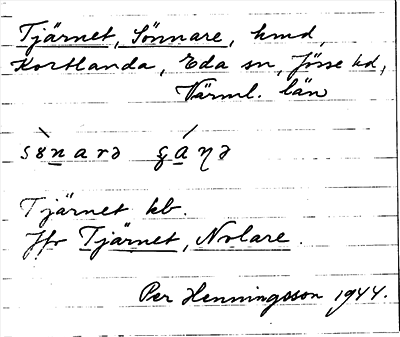 Tjärnet, Sönnare, hmd,
Kortlanda, Eda sn, Jösse hd,
Värml. län
Tjärnet hb.
Jfr Tjärnet, Nolare.
Per Henningsson 1944.